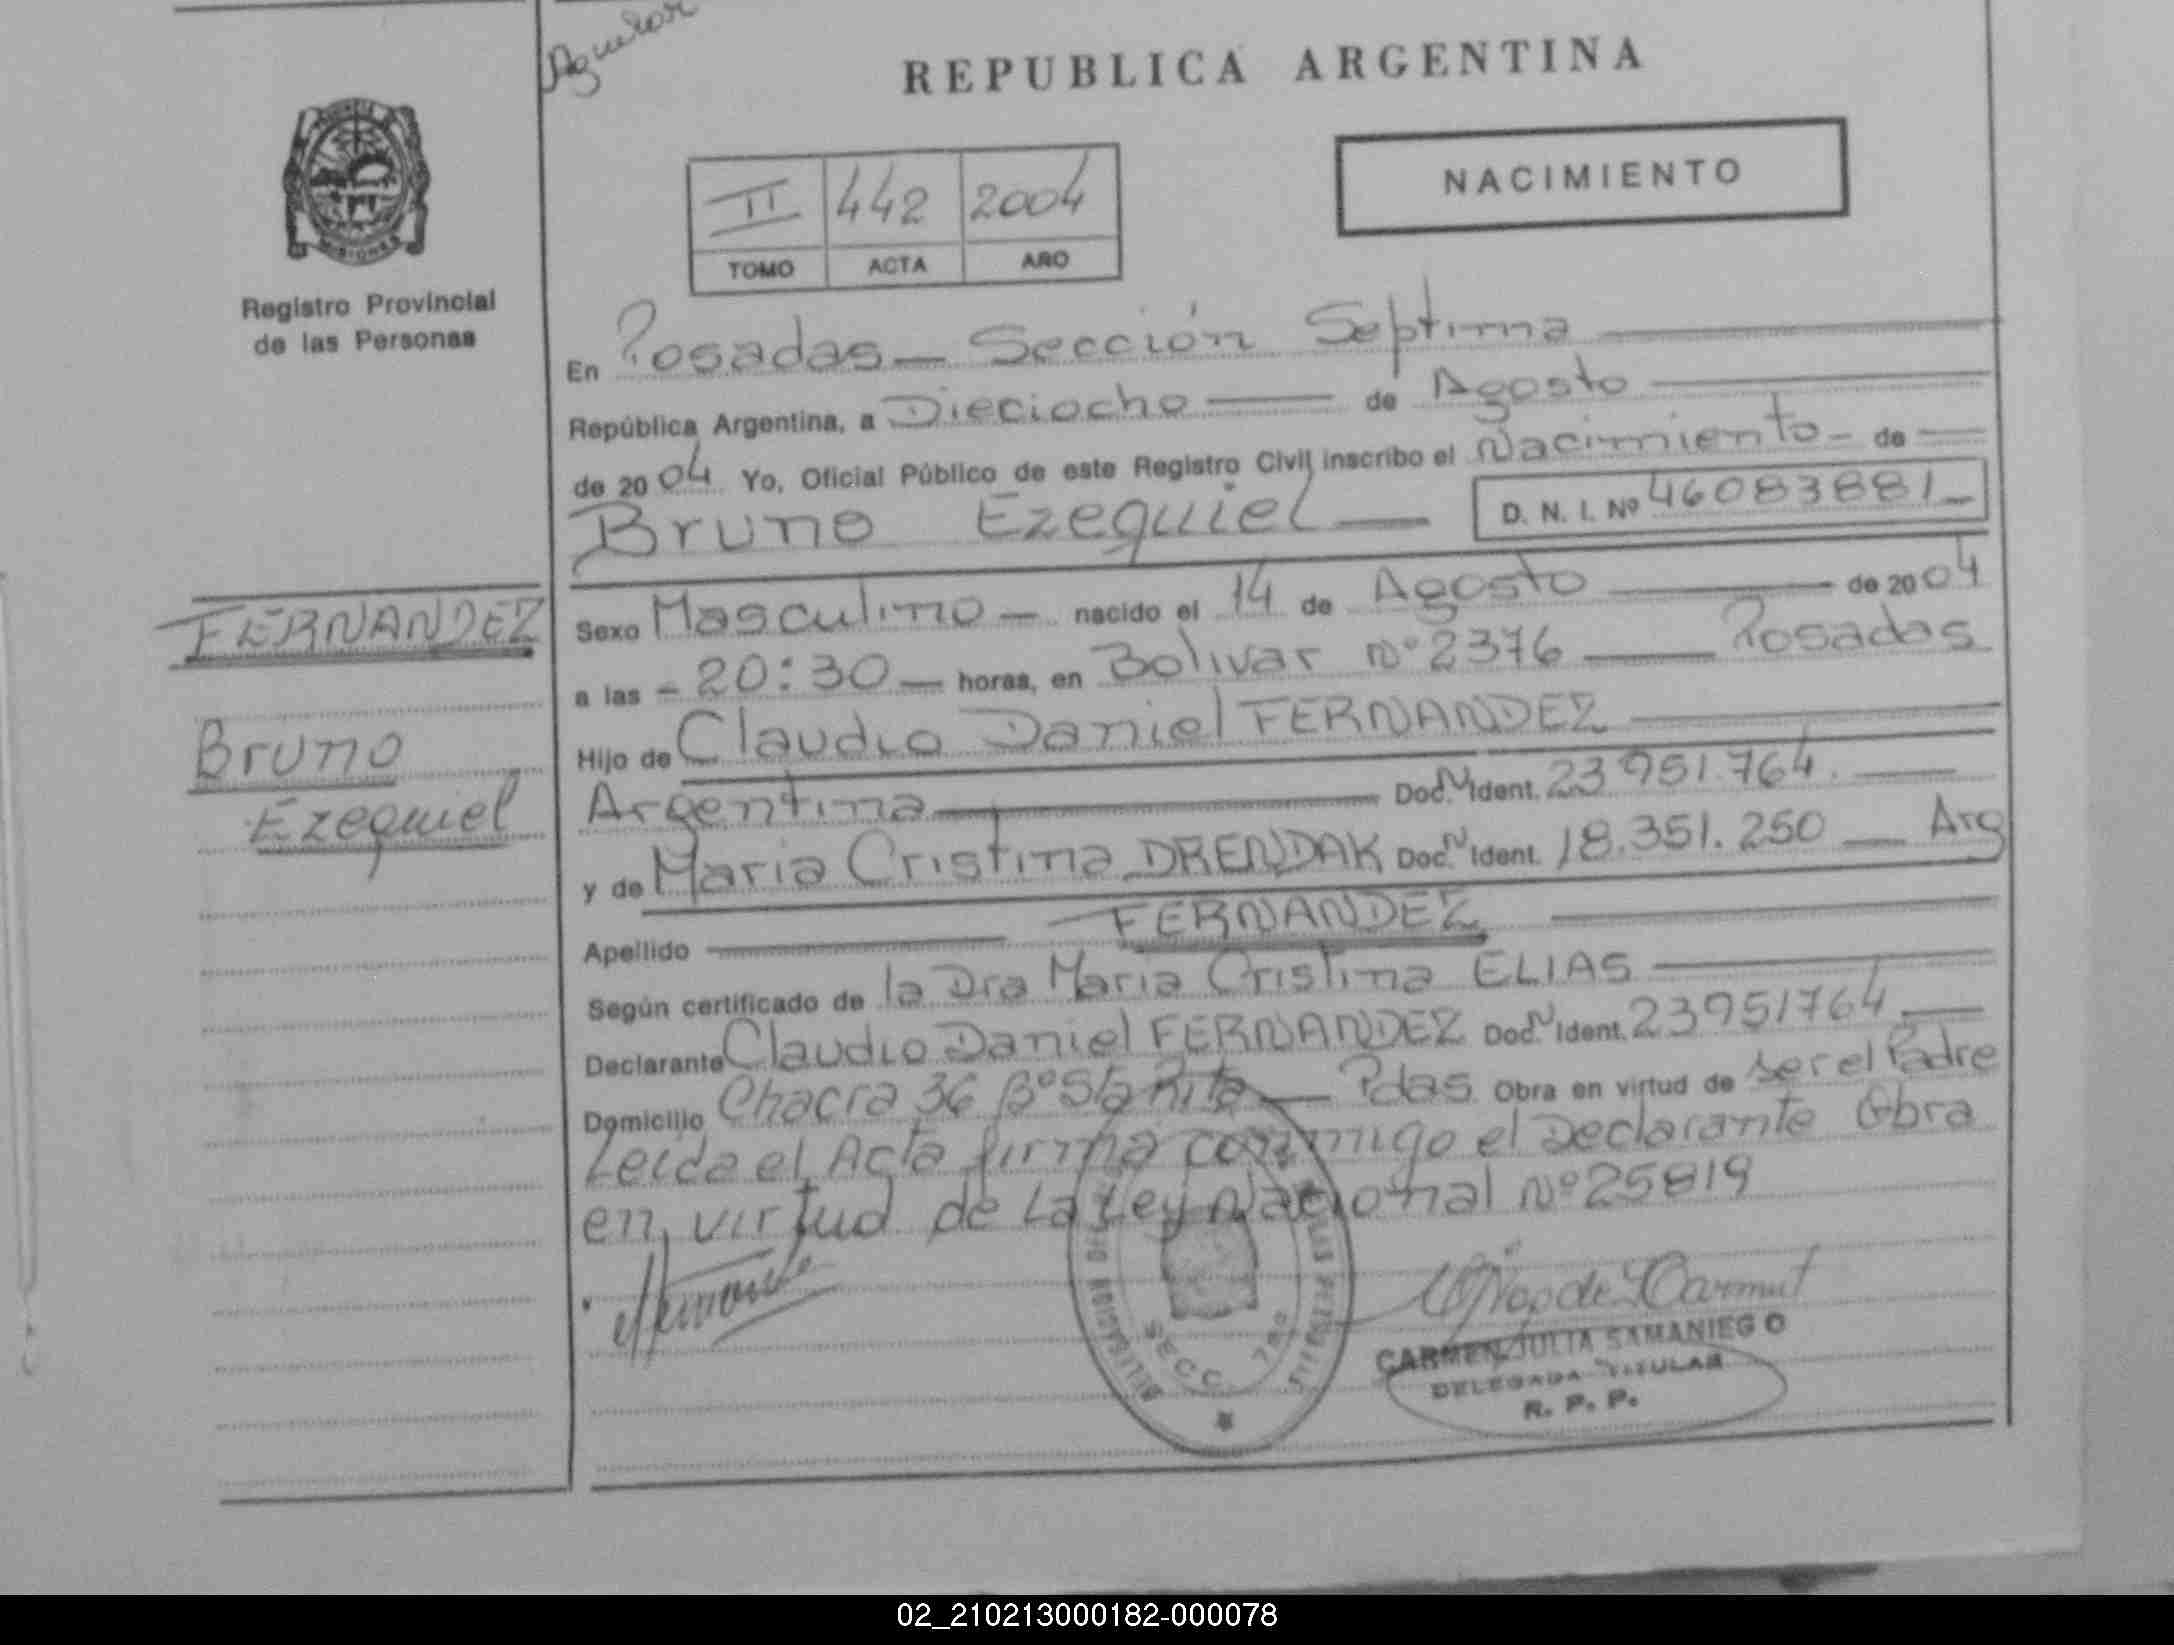 Aguilar
REPUBLICA ARGENTINA
NACIMIENTO
II 442 2004
TOMO ACTA AÑO
MISIONES
Registro Provincial
de las Personas
En Posadas - Sección Septima
República Argentina, a Dieciocho de Agosto
de 2004 Yo, Oficial Público de este Registro Civil inscribo el Nacimiento - de
Bruno Ezequiel D. N. I. Nº 46083881
FERNANDEZ
Bruno
Ezequiel
Sexo Masculino - nacido el 14 de Agosto de 2004
a las - 20:30 - horas, en Bolivar Nº 2376 Posadas
Hijo de Claudio Daniel FERNANDEZ
Argentina Doc. N Ident. 23 951.764.
y de Maria Cristina DRENDAK Doc. N Ident. 18.351.250 Arg
Apellido FERNANDEZ
Según certificado de la Dra Maria Cristina ELIAS
Declarante Claudio Daniel FERNANDEZ Doc. N Ident. 23951764
Domicilio Chacra 36 Bº Sta Rita Pdas Obra en virtud de ser el Padre
Leida el Acta firma conmigo el Declarante Obra
en virtud de La Ley Nacional Nº 25819
SECC. 7ma
CARMEN JULIA SAMANIEGO
DELEGADA TITULAR
R. P. P.
02_210213000182-000078